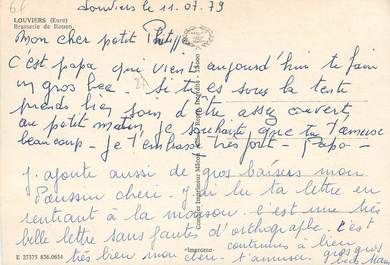 Louviers le 11.07.79
LOUVIERS (Eure)
Brasserie de Rouen
Mon cher petit Philippe
C'est papa qui vient aujourd'hui te faire
un gros bec. Si tu es sous la tente
prends bien soin d'être assez couvert
au petit matin, je souhaite que tu t'amuse
beaucoup - Je t'embrasse très fort - Papa -
J'ajoute aussi de gros baisers mon
Poussin chéri. J'ai lu ta lettre en
rentrant à la maison. C'est une très
belle lettre sans fautes d'orthographe. C'est
très bien mon chéri. continues à bien
t'amuser gros gros
becs Maman
E 27375 836.0654
"Impromo"
Combier Imprimeur Mâcon